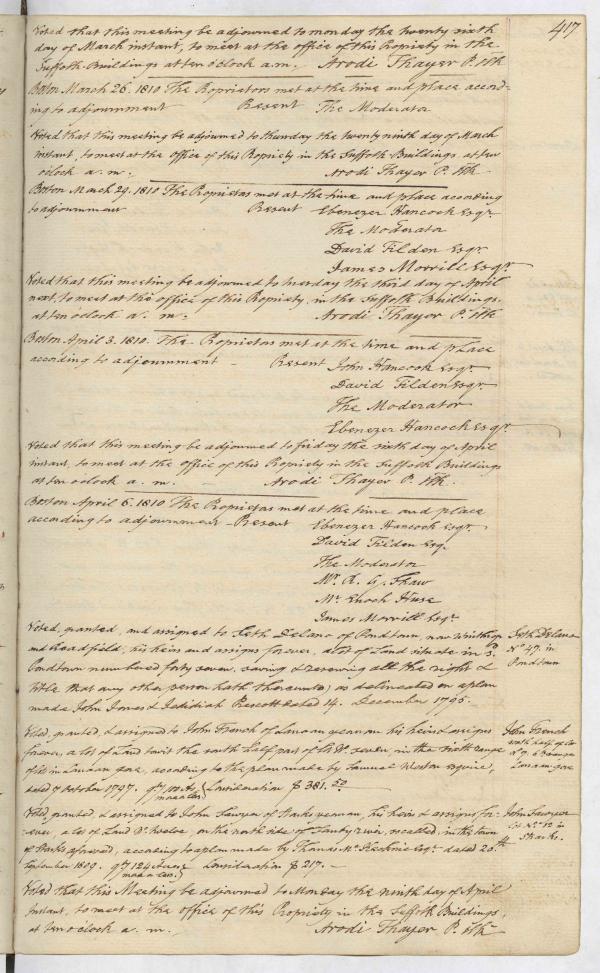 417
Voted that this meeting be adjourned to monday the twenty sixth
day of March instant, to meet at the office of this Propriety in the
Suffolk-Buildings at ten oClock a.m. Arodi Thayer P. Clk
Boston March 26. 1810 The Proprietors met at the time and place accord-
ing to adjournment Present The Moderator
Voted that this meeting be adjourned to thursday the twenty ninth day of March
instant, to meet at the office of this Propriety in the Suffolk Buildings at ten
o'clock a. m. Arodi Thayer P. Clk.
Boston March 29. 1810 The Proprietors met at the time and place according
to adjournment Present Ebenezer Hancock Esqr.
The Moderator
David Tilden Esqr
James Morrill Esqr
Voted that this meeting be adjourned to tuesday the third day of April
next, to meet at the office of this Propriety, in the Suffolk Buildings.
at ten oclock a. m. Arodi Thayer P. Clk
Boston April 3. 1810. The Proprietors met at the time and place
according to adjournment - Present John Hancock Esqr.
David Tilden Esqr
The Moderator
Ebenezer Hancock Esqr.
Voted that this meeting be adjourned to friday the sixth day of April
instant, to meet at the office of this Propriety in the Suffolk Buildings
at ten oclock a. m. - Arodi Thayer P. Clk.
Boston April 6. 1810 The Proprietors met at the time and place
according to adjournment - Present Ebenezer Hancock Esqr.
David Tilden Esq.
The Moderator
Mr. A. G. Shaw
Mr. Enoch Huse
James Morrill Esqr.
Voted, granted, and assigned to Seth Delano of Pondtown, now Winthrop
and Readfield, his heirs and assigns forever, a lot of Land situate in sd.
Pondtown numbered forty seven, saving & reserving all the right &
title that any other person hath thereunto; as delineated on a plan
made John Jones & Jedidiah Prescott dated 14. December 1795.
Seth Delano
No. 47. in
Pondtown
Voted, granted, & assigned to John French of yeoman his heirs & assigns
forever, a lot of Land to wit the south half part of lot No. seven, in the range
of lots in gore, according to the plan made by Samuel Weston esquire,
dated 7 October 1797. acres Consideration $ 381.50
John French
south half of lot
No. 7.
gore
Voted, granted, & assigned to John Sawyer of Starks yeoman, his heirs & assigns for-
-ever, a lot of Land No. twelve, on the north side of Sandy river, so called, in the town
of Starks aforesaid, according to a plan made by Esqr. dated 20th
September 1809. qty 124 Acres Consideration $ 217. -
John Sawyer
Lot No. 12 in
Starks.
Voted that this Meeting be adjourned to Monday the ninth day of April
Instant, to meet at the office of this Propriety in the Suffolk Buildings,
at ten o'clock a. m. Arodi Thayer P. Clk